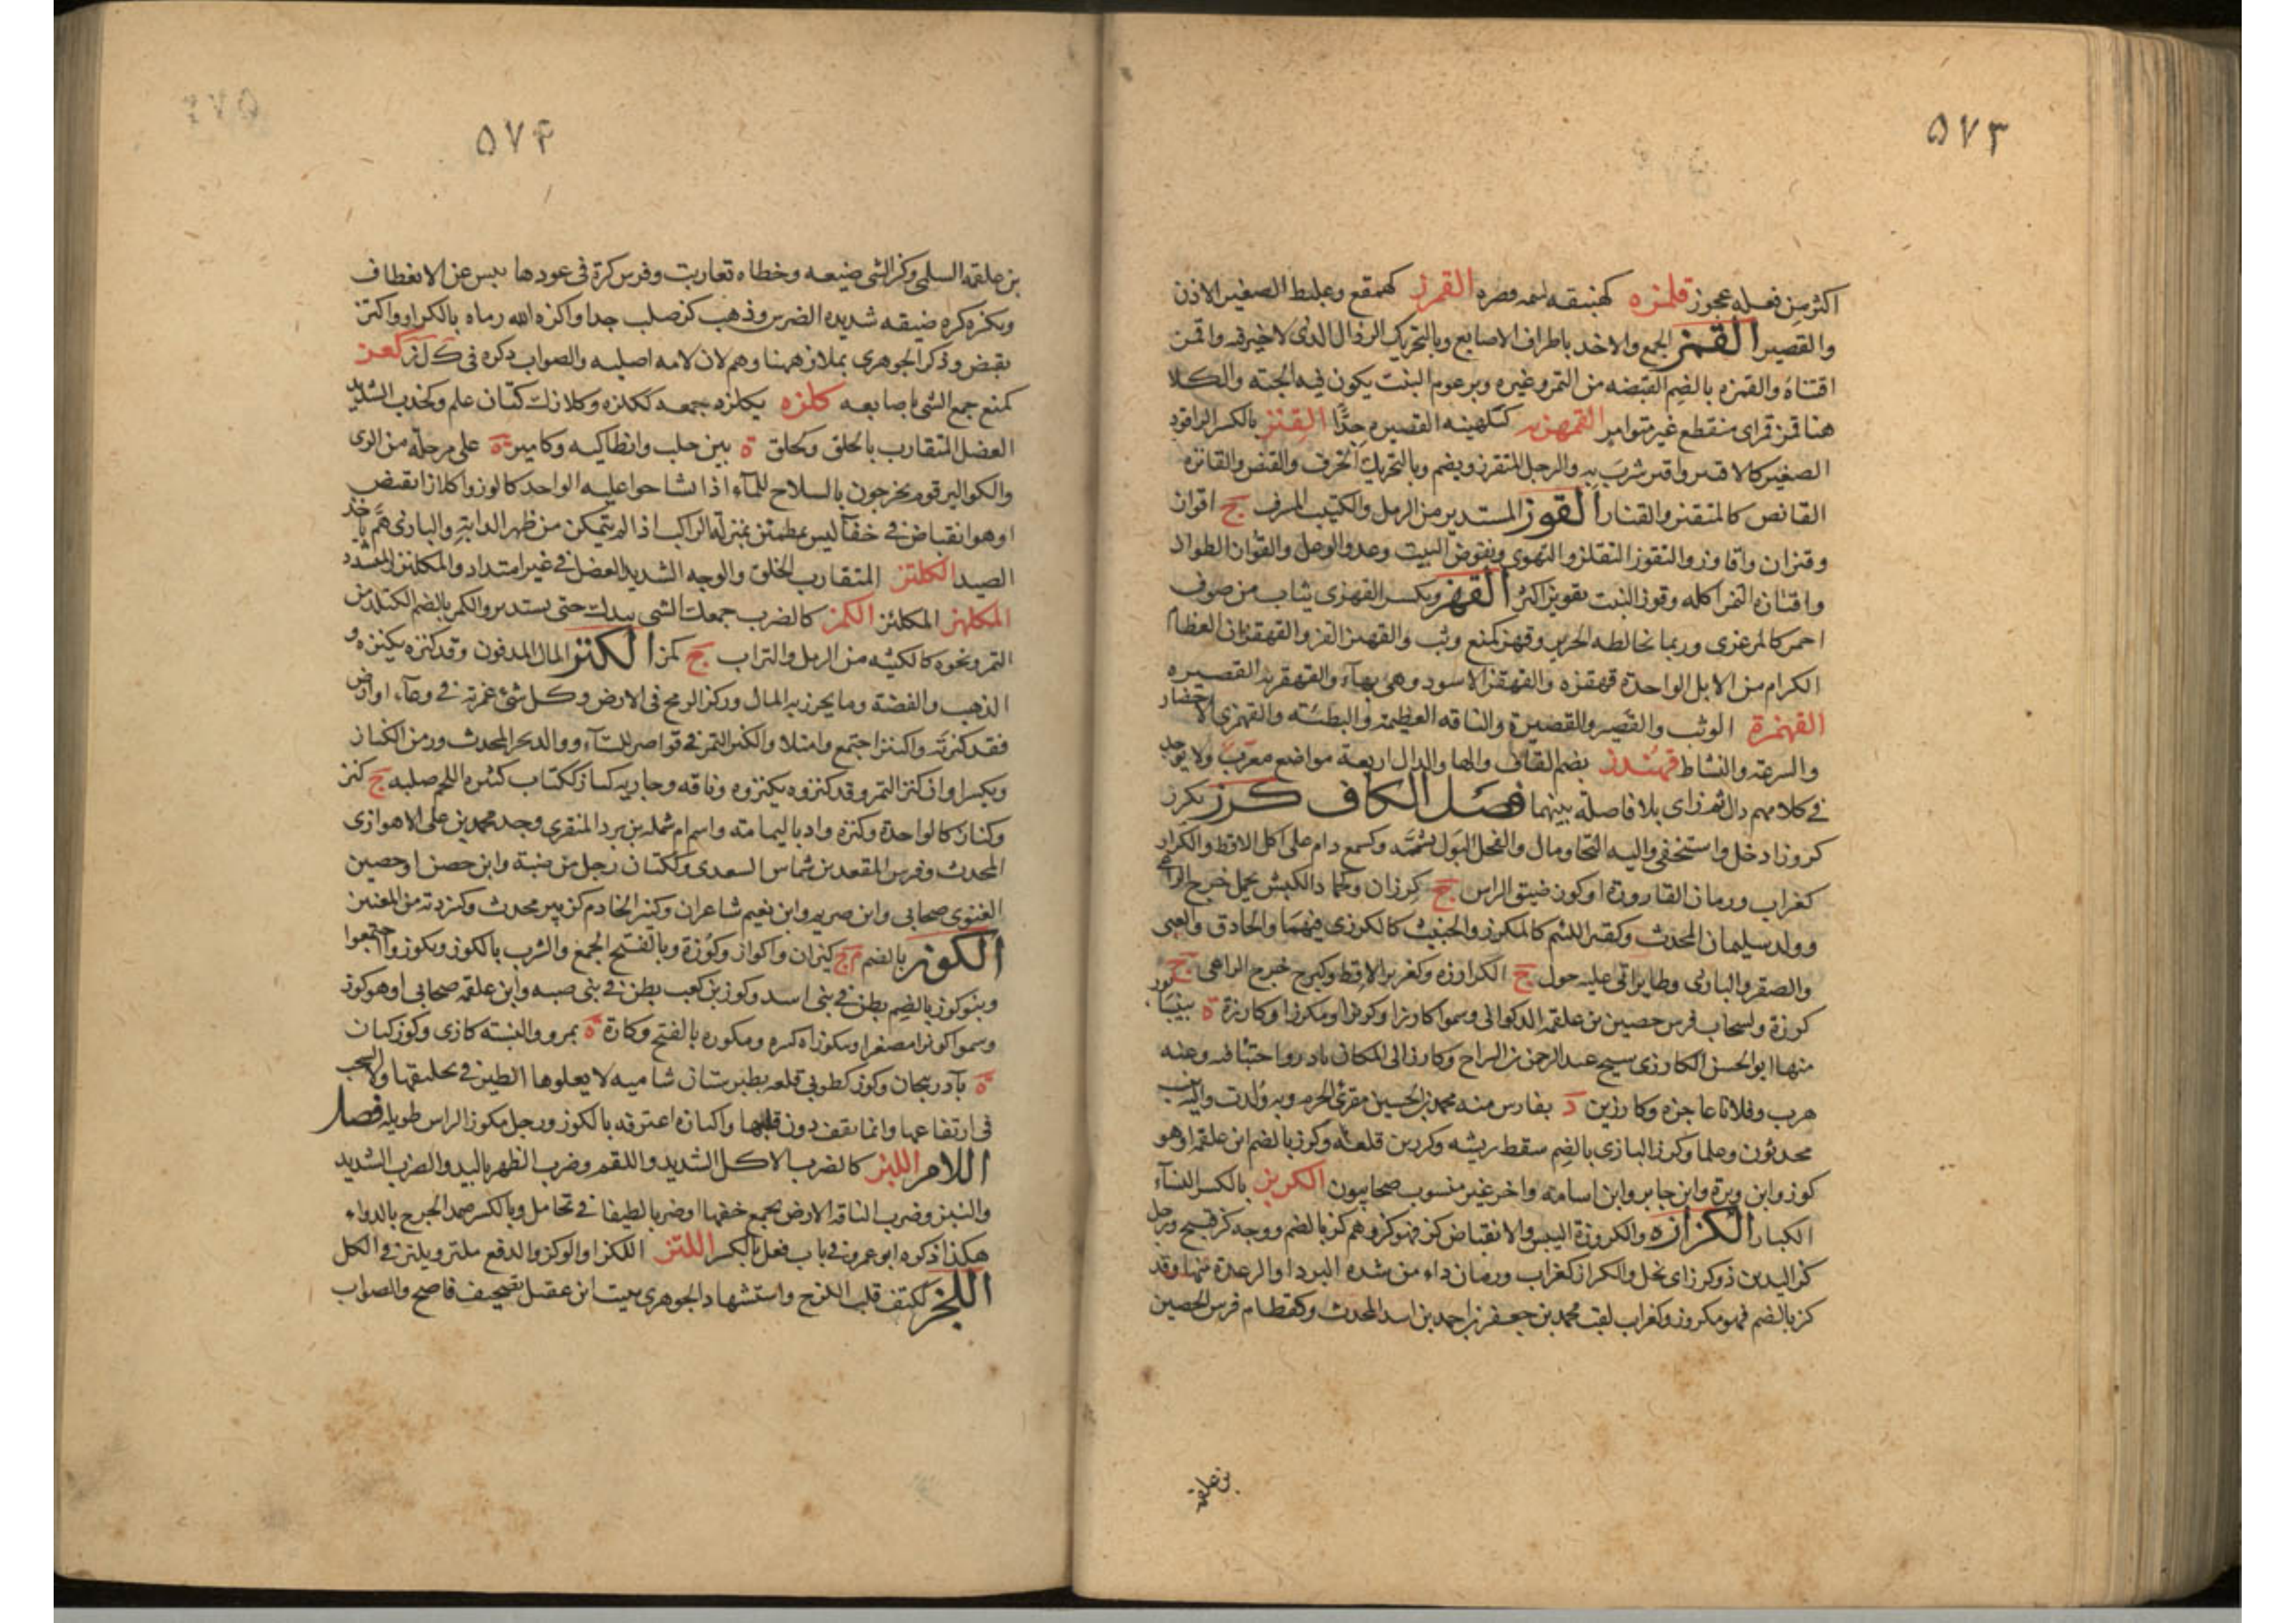 ۵۷۳
اكثر من فعله عجوز قلمزه كهنبقه لئيمه قصيره القمرز كهمقع وعلبط الصغير الاذن
والقصير القمز الجمع والاخذ باطراف الاصابع وبالتحريك الرذال الذى لا خير فيه واقمز
اقتناه والقمزه بالضم القبضه من التمر وغيره وبرعوم النبت يكون فيه الحبة والكلا
هنا قمز قمز اى منقطع غير متواصل القمهزيه كبلهنيه القصيره جدًّا القنز بالكسر الراقود
الصغير كالاقنيز واقنز شرب به والرجل المتقزز ويضم وبالتحريك الخزف والقنص والقانز
القانص كالمتقنز والقناز القوز المستدير من الرمل والكثيب المشرف ج اقواز
وقيزان واقاوز والتقوز التقلز والتهوى وتقوض البيت وعدو الوعل والقواز الطوال
واقتازه النمر اكله وقوز النبت تقويزا كثر القهز ويكسر القهزى ثياب من صوف
احمر كالمرعزى وربما يخالطه الحرير وقهز كمنع وثب والقهيز القز والقهقزان العظام
الكرام من الابل الواحدة قهقزه والقهقز الاسود وهى بهآء والقهقزيه القصيره
القهمزة الوثب والقصير والقصيرة والناقه العظيمة والبطيئه والقهمزى الاحضار
والسرعة والنشاط قهندز بضم القاف والها والدال اربعة مواضع معرّب ولا يوجد
فى كلامهم دال ثم زاى بلا فاصلة بينهما فصل الكاف كرز يكرز
كروزا دخل واستخفى واليه التجا ومال والفحل البول تشممه وكسمع دام على اكل الاقط والكراز
كغراب ورمان القارورة او كوز ضيق الراس ج كرزان وكحماد الكبش يحمل خرج الراعى
وولد سليمان المحدث وكقبر اللئيم كالمكرز والخبيث كالكرزى فيهما والحاذق والعيى
والصقر والبازى وطاير اتى عليه حول ج الكرارزه وكغرير الاقط وكبرج خرج الراعى ج
كرزة وكسحاب فرس حصين بن علقمه الذكوانى وسموا كارزا وكرزا ومكرزا وكارزة ة بنيسابور
منها ابو الحسن الكارزى سمع عبد الرحمن بن السراج وكارز الى المكان بادر واختبأ فيه وعنه
هرب وفلانا عاجزه وكارزين د بفارس منه محمد بن الحسين مقرئ الحرم وبه ولدت واليه ينسب
محدثون وعلما وكرز البازى بالضم سقط ريشه وكرزين قلعة وكرز بالضم ابن علقمه او هو
كوز وابن وبرة وابن جابر وابن اسامه واخر غير منسوب صحابيون الكربز بالكسر القثآء
الكبار الكزازه والكزوزة اليبس والانقباض كز فهو كز وهم كز بالضم ووجه كز قبيح ورجل
كز اليدين ذو كزز اى بخل والكزاز كغراب ورمان داء من شده البرد او الرعدة منها وقد
كز بالضم فهو مكزوز وكغراب لقب محمد بن جعفر بن احمد بن اسد المحدث وكقطام فرس الحصين
بن علقمه
۵۷۴
بن علقمه السلمى وكز الشى ضيقه وخطاه تقاربت وقوس كزة فى عودها يبس عن الانعطاف
وبكره كزه ضيقه شديده الضرس وذهب كز صلب جدا واكزه الله رماه بالكزاز واكتز
تقبض وذكر الجوهرى بملاز همنا وهم لان لامه اصليه والصواب ذكره فى ك ل ز كعز
كمنع جمع الشى باصابعه كلزه يكلزه جمعه ككلزه وكلاز ككتان علم وكخدب الشديد
العضل المتقارب بالخلق وكحلق ة بين حلب وانطاكيه وكامير ة على مرحله من الرى
والكواليز قوم يخرجون بالسلاح للماء اذا تشاحوا عليه الواحد كالوز واكلاز انقبض
او هو انقباض فى خفآ ليس بمطمئن بمنزله الراكب اذا لم يتمكن من ظهر الدابة والبازى هَمّ باخذ
الصيد الكلتز المتقارب الخلق والوجه الشديد العضل فى غير امتداد والمكلئز المتشدد
المكلهز المكلئز الكمز كالضرب جمعك الشى بيدك حتى يستدير والكمز بالضم الكتلة من
التمر ونحوه كالكثبه من الرمل والتراب ج كمز الكنز المال المدفون وقد كنزه يكنزه و
الذهب والفضة وما يحرز به المال وركز الرمح فى الارض وكل شئ غمزته فى وعآء او ارض
فقد كنزته واكتنز اجتمع وامتلا والكنيز التمر فى قواصر للشتآء ووالد بحر المحدث وزمن الكناز
ويكسر اوان كنز التمر وقد كنزوه يكنزوه وناقه وجاريه كناز ككتاب كثيره اللحم صلبه ج كنز
وكناز كالواحدة وكنزة واد باليمامه واسم ام شمله بن برد المنقرى وجد محمد بن على الاهوازى
المحدث وفرس المقعد بن شماس السعدى وككتان رجل من ضبة وابن حصن او حصين
الغنوى صحابى وابن صريم وابن نعيم شاعران وكنيز الخادم كزبير محدث وكنز دته من المغنين
الكوز بالضم م ج كيزان واكواز وكوزة وبالفتح الجمع والشرب بالكوز وتكوزوا اجتمعوا
وبنو كوز بالضم بطن فى بنى اسد وكوز بن كعب بطن فى بنى ضبه وابن علقمه صحابى او هو كرز
وسموا كويزا مصغرا ومكوزا كـ ومكوزه بالفتح وكازة ة بمرو والنسبه كازى وكوزكنان
ة بآذربيجان وكوزى كطوبى قلعه بطبرستان شاميه لا يعلوها الطير فى تحليقها ولا السحب
فى ارتفاعها وانما تقف دون قلتها واكتازه اعترفه بالكوز ورجل مكوز الراس طويله فصل
اللام اللبز كالضرب الاكل الشديد واللقم وضرب الظهر باليد والضرب الشديد
والنبز وضرب الناقه الارض بجمع خفها او ضربا لطيفا فى تحامل وبالكسر ضمد الجرح بالدواء
هكذا ذكره ابو عمرو فى باب فعل بالكسر اللتز اللكز او الوكز والدفع يلتز ويلتز فى الكل
اللجز ككتف قلب اللزج واستشهاد الجوهرى ببيت ابن مقبل تصحيف فاضح والصواب